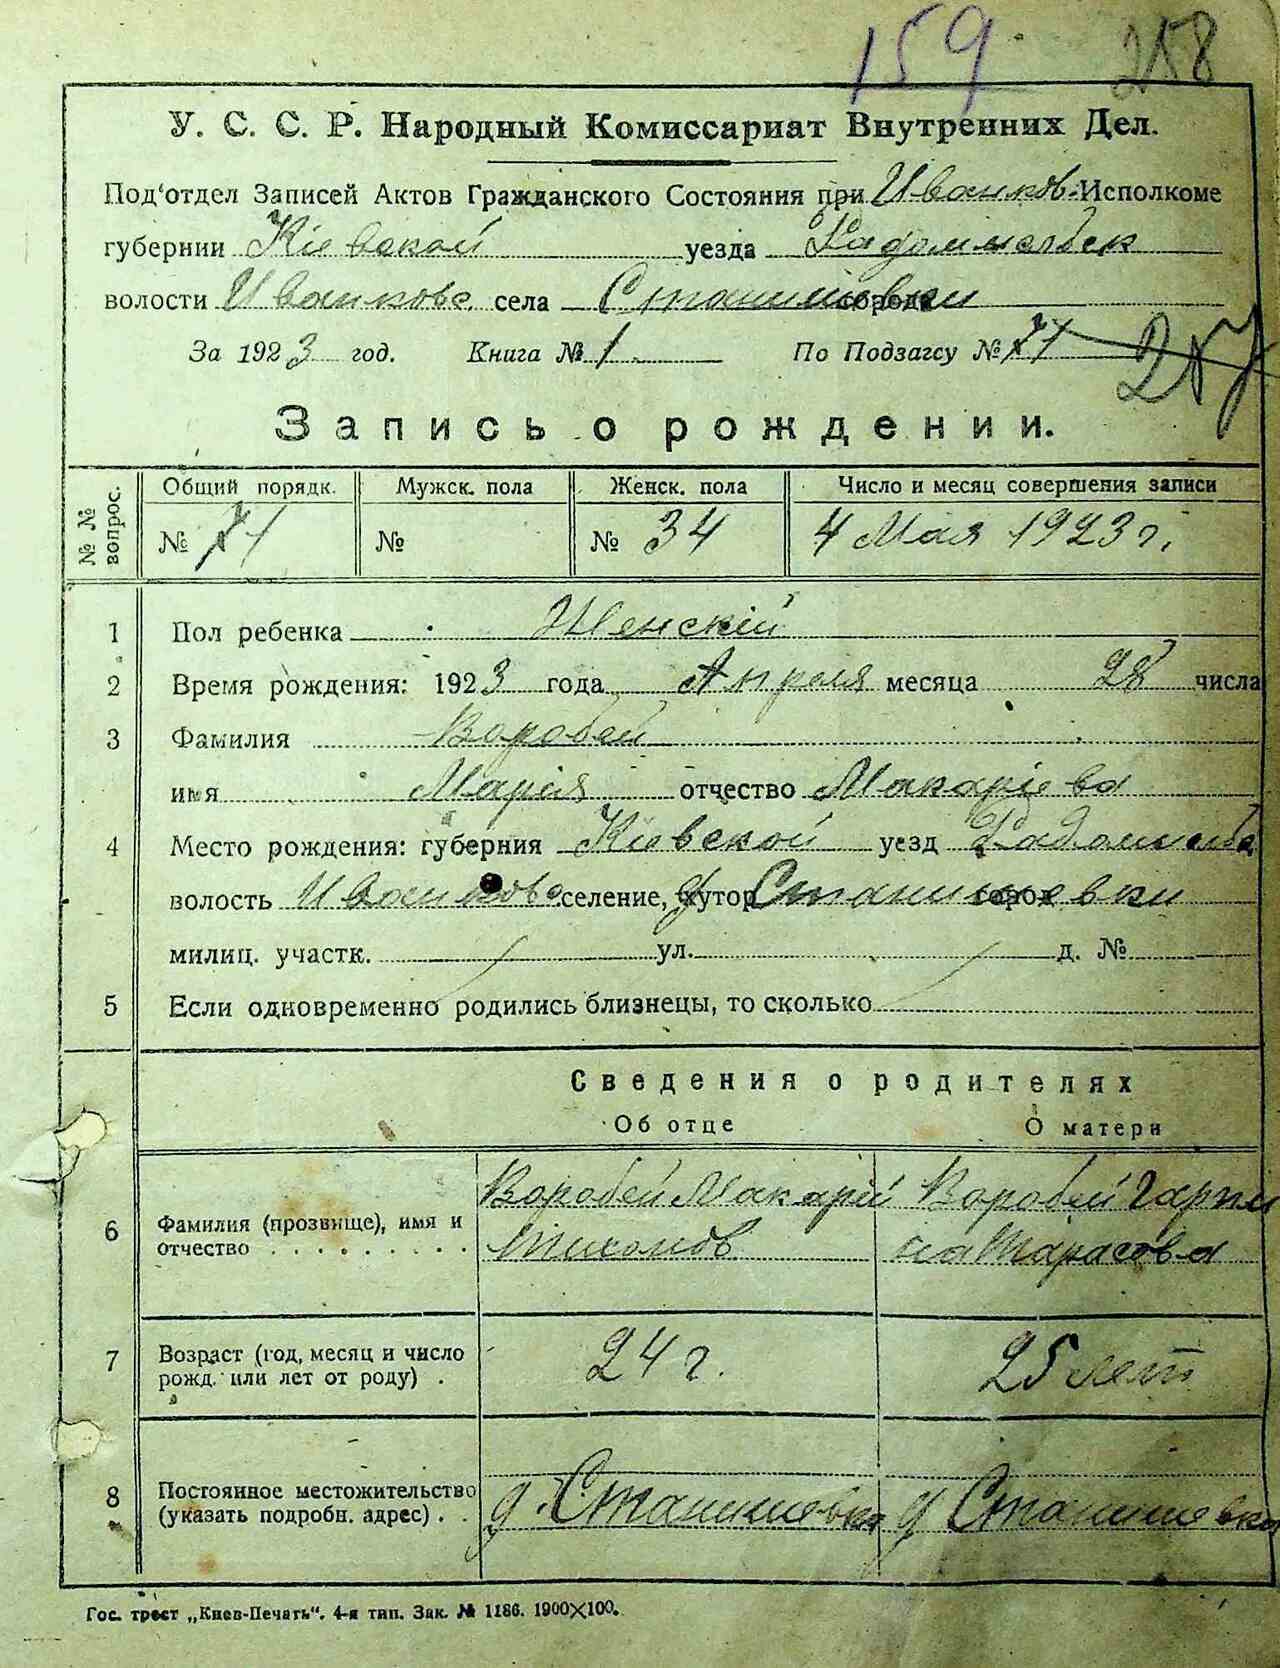 159 258
У. С. С. Р. Народный Комиссариат Внутренних Дел.
Под'отдел Записей Актов Гражданского Состояния при Иванков. Исполкоме
губернии Кіевской уезда Радомысльск
волости Иванковс. села Станишевки города
За 1923 год. Книга № 1 По Подзагсу № 71 257
Запись о рождении.
№ № вопрос. Общий порядк. Мужск. пола Женск. пола Число и месяц совершения записи
№ 71 № № 34 4 Мая 1923 г.
1 Пол ребенка Женскій
2 Время рождения: 1923 года Апреля месяца 28 числа
3 Фамилия Воробей
имя Марія отчество Макаріева
4 Место рождения: губерния Кіевской уезд
волость Иванковс селение, хутор Станишевки город
милиц. участк. ул. д. №
5 Если одновременно родились близнецы, то сколько
Сведения о родителях
Об отце О матери
6 Фамилия (прозвище), имя и отчество Воробей Макарій Тихонов Воробей Гарпина Тарасова
7 Возраст (год, месяц и число рожд. или лет от роду) 24 г. 25 лет
8 Постоянное местожительство (указать подробн. адрес) д. Станишевка д Станишевка
Гос. трест „Киев-Печать“. 4-я тип. Зак. № 1186. 1900×100.